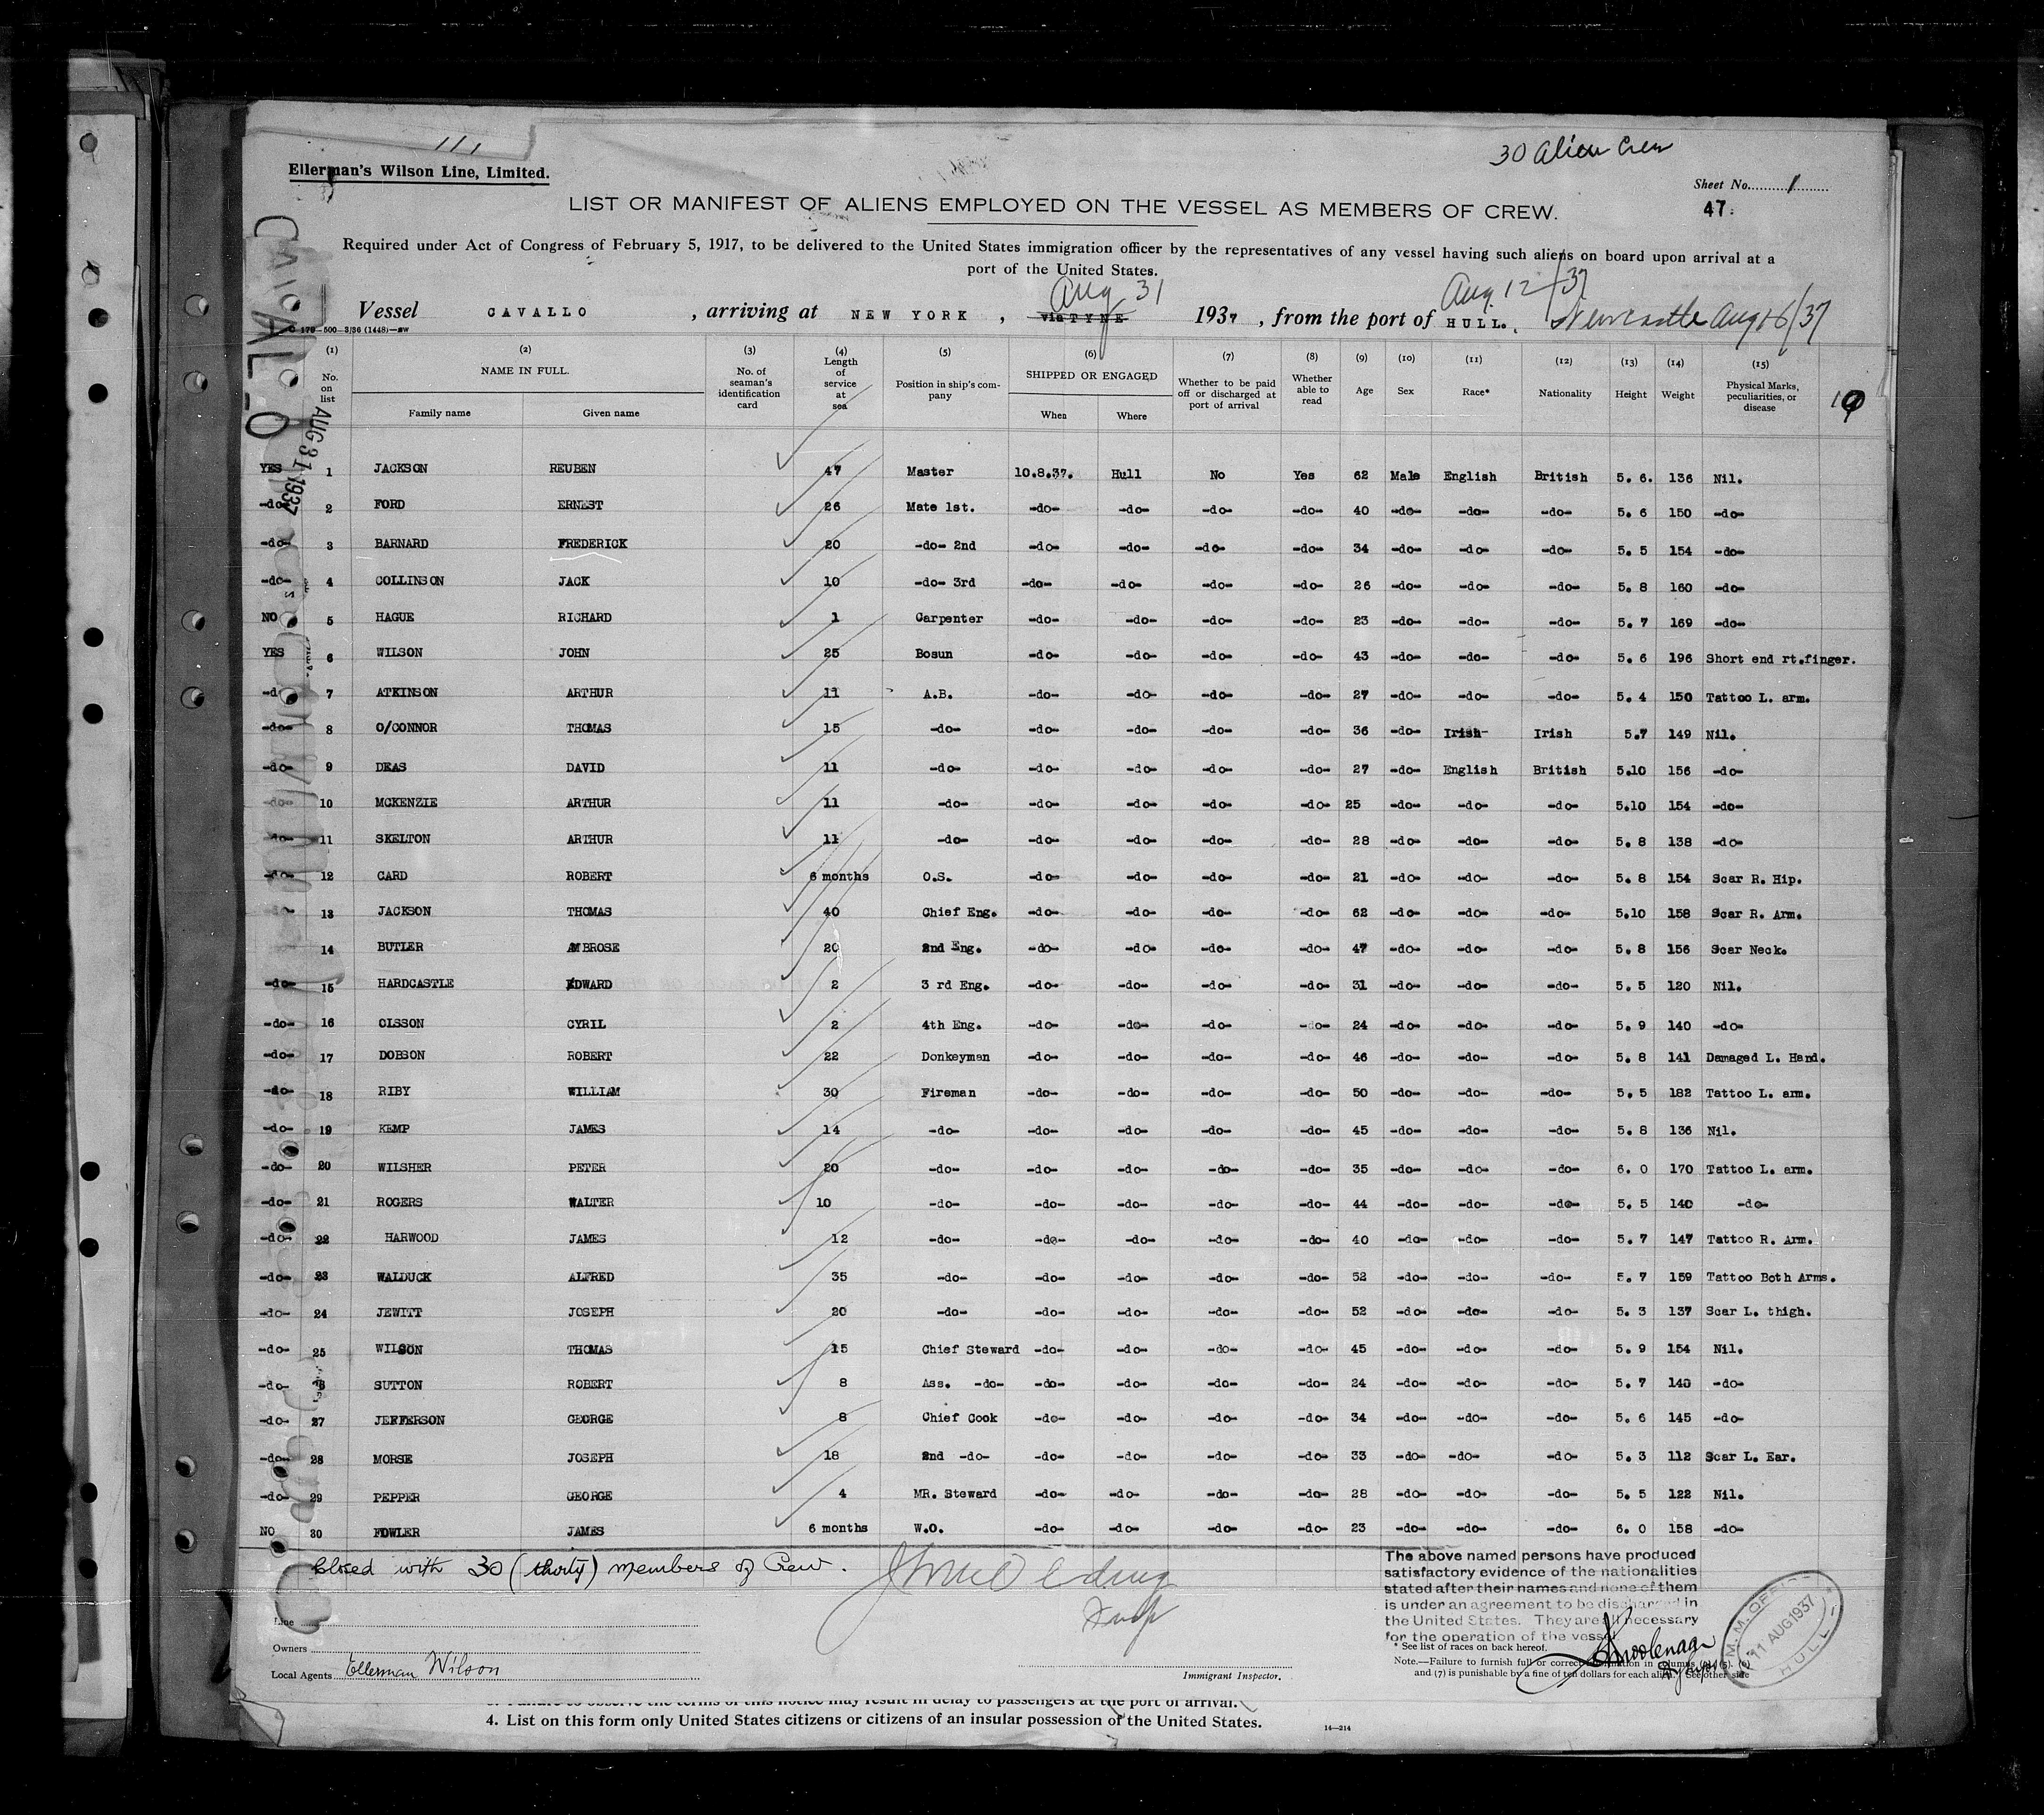 111
30 Alien Crew
Ellerman's Wilson Line, Limited.
Sheet No. 1
LIST OR MANIFEST OF ALIENS EMPLOYED ON THE VESSEL AS MEMBERS OF CREW.
47.
Required under Act of Congress of February 5, 1917, to be delivered to the United States immigration officer by the representatives of any vessel having such aliens on board upon arrival at a
port of the United States.
CAVALLO
AUG 31 1937
Aug 31 Aug. 12/37
Vessel CAVALLO, arriving at NEW YORK, via TYNE 1937, from the port of HULL., Newcastle Aug 16/37
C 179-500-3/36 (1448)-SW
(1) No. on list (2) NAME IN FULL. Family name Given name (3) No. of seaman's identification card (4) Length of service at sea (5) Position in ship's company (6) SHIPPED OR ENGAGED When Where (7) Whether to be paid off or discharged at port of arrival (8) Whether able to read (9) Age (10) Sex (11) Race* (12) Nationality (13) Height (14) Weight (15) Physical Marks, peculiarities, or disease
YES 1 JACKSON REUBEN 47 Master 10.8.37. Hull No Yes 62 Male English British 5. 6. 136 Nil.
-do- 2 FORD ERNEST 26 Mate 1st. -do- -do- -do- -do- 40 -do- -do- -do- 5. 6 150 -do-
-do- 3 BARNARD FREDERICK 20 -do- 2nd -do- -do- -do- -do- 34 -do- -do- -do- 5. 5 154 -do-
-do- 4 COLLINSON JACK 10 -do- 3rd -do- -do- -do- -do- 26 -do- -do- -do- 5. 8 160 -do-
NO 5 HAGUE RICHARD 1 Carpenter -do- -do- -do- -do- 23 -do- -do- -do- 5. 7 169 -do-
YES 6 WILSON JOHN 25 Bosun -do- -do- -do- -do- 43 -do- -do- -do- 5. 6 196 Short end rt.finger.
-do- 7 ATKINSON ARTHUR 11 A.B. -do- -do- -do- -do- 27 -do- -do- -do- 5. 4 150 Tattoo L. arm.
-do- 8 O/CONNOR THOMAS 15 -do- -do- -do- -do- -do- 36 -do- Irish- Irish 5.7 149 Nil.
-do- 9 DEAS DAVID 11 -do- -do- -do- -do- -do- 27 -do- English British 5.10 156 -do-
-do- 10 MCKENZIE ARTHUR 11 -do- -do- -do- -do- -do- 25 -do- -do- -do- 5.10 154 -do-
-do- 11 SKELTON ARTHUR 11 -do- -do- -do- -do- -do- 28 -do- -do- -do- 5. 8 138 -do-
-do- 12 CARD ROBERT 6 months O.S. -do- -do- -do- -do- 21 -do- -do- -do- 5. 8 154 Scar R. Hip.
-do- 13 JACKSON THOMAS 40 Chief Eng. -do- -do- -do- -do- 62 -do- -do- -do- 5.10 158 Scar R. Arm.
14 BUTLER AMBROSE 20 2nd Eng. -do- -do- -do- -do- 47 -do- -do- -do- 5. 8 156 Scar Neck.
-do- 15 HARDCASTLE EDWARD 2 3 rd Eng. -do- -do- -do- -do- 31 -do- -do- -do- 5. 5 120 Nil.
-do- 16 OLSSON CYRIL 2 4th Eng. -do- -do- -do- -do- 24 -do- -do- -do- 5. 9 140 -do-
-do- 17 DOBSON ROBERT 22 Donkeyman -do- -do- -do- -do- 46 -do- -do- -do- 5. 8 141 Damaged L. Hand.
-do- 18 RIBY WILLIAM 30 Fireman -do- -do- -do- -do- 50 -do- -do- -do- 5. 5 182 Tattoo L. arm.
-do- 19 KEMP JAMES 14 -do- -do- -do- -do- -do- 45 -do- -do- -do- 5. 8 136 Nil.
-do- 20 WILSHER PETER 20 -do- -do- -do- -do- -do- 35 -do- -do- -do- 6. 0 170 Tattoo L. arm.
-do- 21 ROGERS WALTER 10 -do- -do- -do- -do- -do- 44 -do- -do- -do- 5. 5 140 -do-
-do- 22 HARWOOD JAMES 12 -do- -do- -do- -do- -do- 40 -do- -do- -do- 5. 7 147 Tattoo R. Arm.
-do- 23 WALDUCK ALFRED 35 -do- -do- -do- -do- -do- 52 -do- -do- -do- 5. 7 159 Tattoo Both Arms.
-do- 24 JEWITT JOSEPH 20 -do- -do- -do- -do- -do- 52 -do- -do- -do- 5. 3 137 Scar L. thigh.
-do- 25 WILSON THOMAS 15 Chief Steward -do- -do- -do- -do- 45 -do- -do- -do- 5. 9 154 Nil.
-do- 26 SUTTON ROBERT 8 Ass. -do- -do- -do- -do- -do- 24 -do- -do- -do- 5. 7 140 -do-
-do- 27 JEFFERSON GEORGE 8 Chief Cook -do- -do- -do- -do- 34 -do- -do- -do- 5. 6 145 -do-
-do- 28 MORSE JOSEPH 18 2nd -do- -do- -do- -do- -do- 33 -do- -do- -do- 5. 3 112 Scar L. Ear.
-do- 29 PEPPER GEORGE 4 MR. Steward -do- -do- -do- -do- 28 -do- -do- -do- 5. 5 122 Nil.
NO 30 FOWLER JAMES 6 months W.O. -do- -do- -do- -do- 23 -do- -do- -do- 6. 0 158 -do-
Closed with 30 (thirty) members of Crew.
The above named persons have produced
satisfactory evidence of the nationalities
stated after their names and none of them
is under an agreement to be discharged in
the United States. They are all necessary
for the operation of the vessel
M.M. OFFICE 11 AUG 1937 HULL
Line
Owners
Local Agents Ellerman Wilson
Immigrant Inspector.
* See list of races on back hereof.
Note.—Failure to furnish full or correct information in columns (2) (5)
and (7) is punishable by a fine of ten dollars for each alien. See other side
3. Failure to observe the terms of this notice may result in delay to passengers at the port of arrival.
4. List on this form only United States citizens or citizens of an insular possession of the United States.
14—214